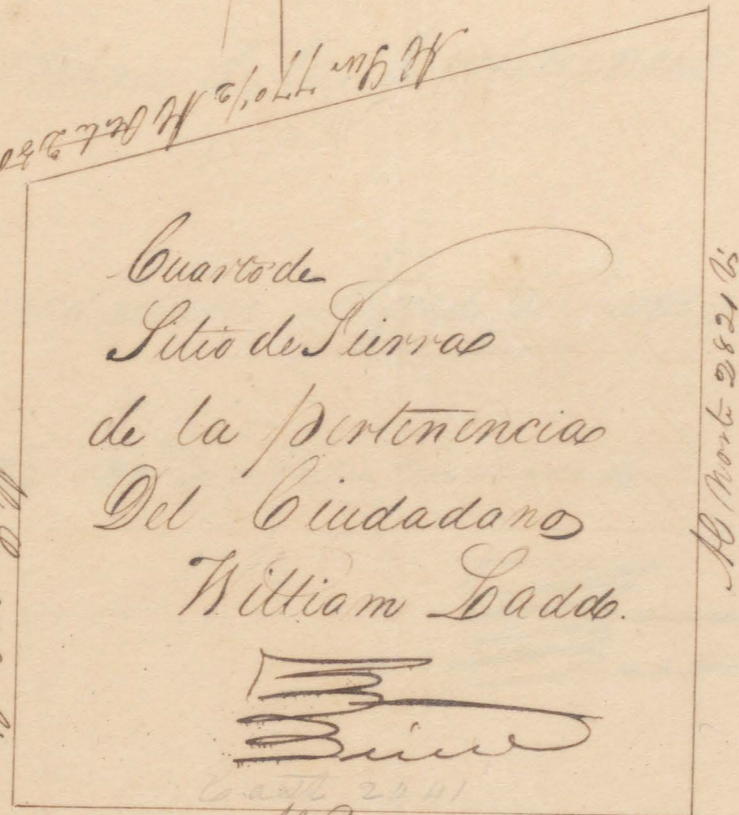 Al Sur 770 1/2 Al Oste 250
Cuarto de
Sitio de Tierra
de la pertenencia
Del Ciudadano
William Ladd.
Al Norte 2821 Vs